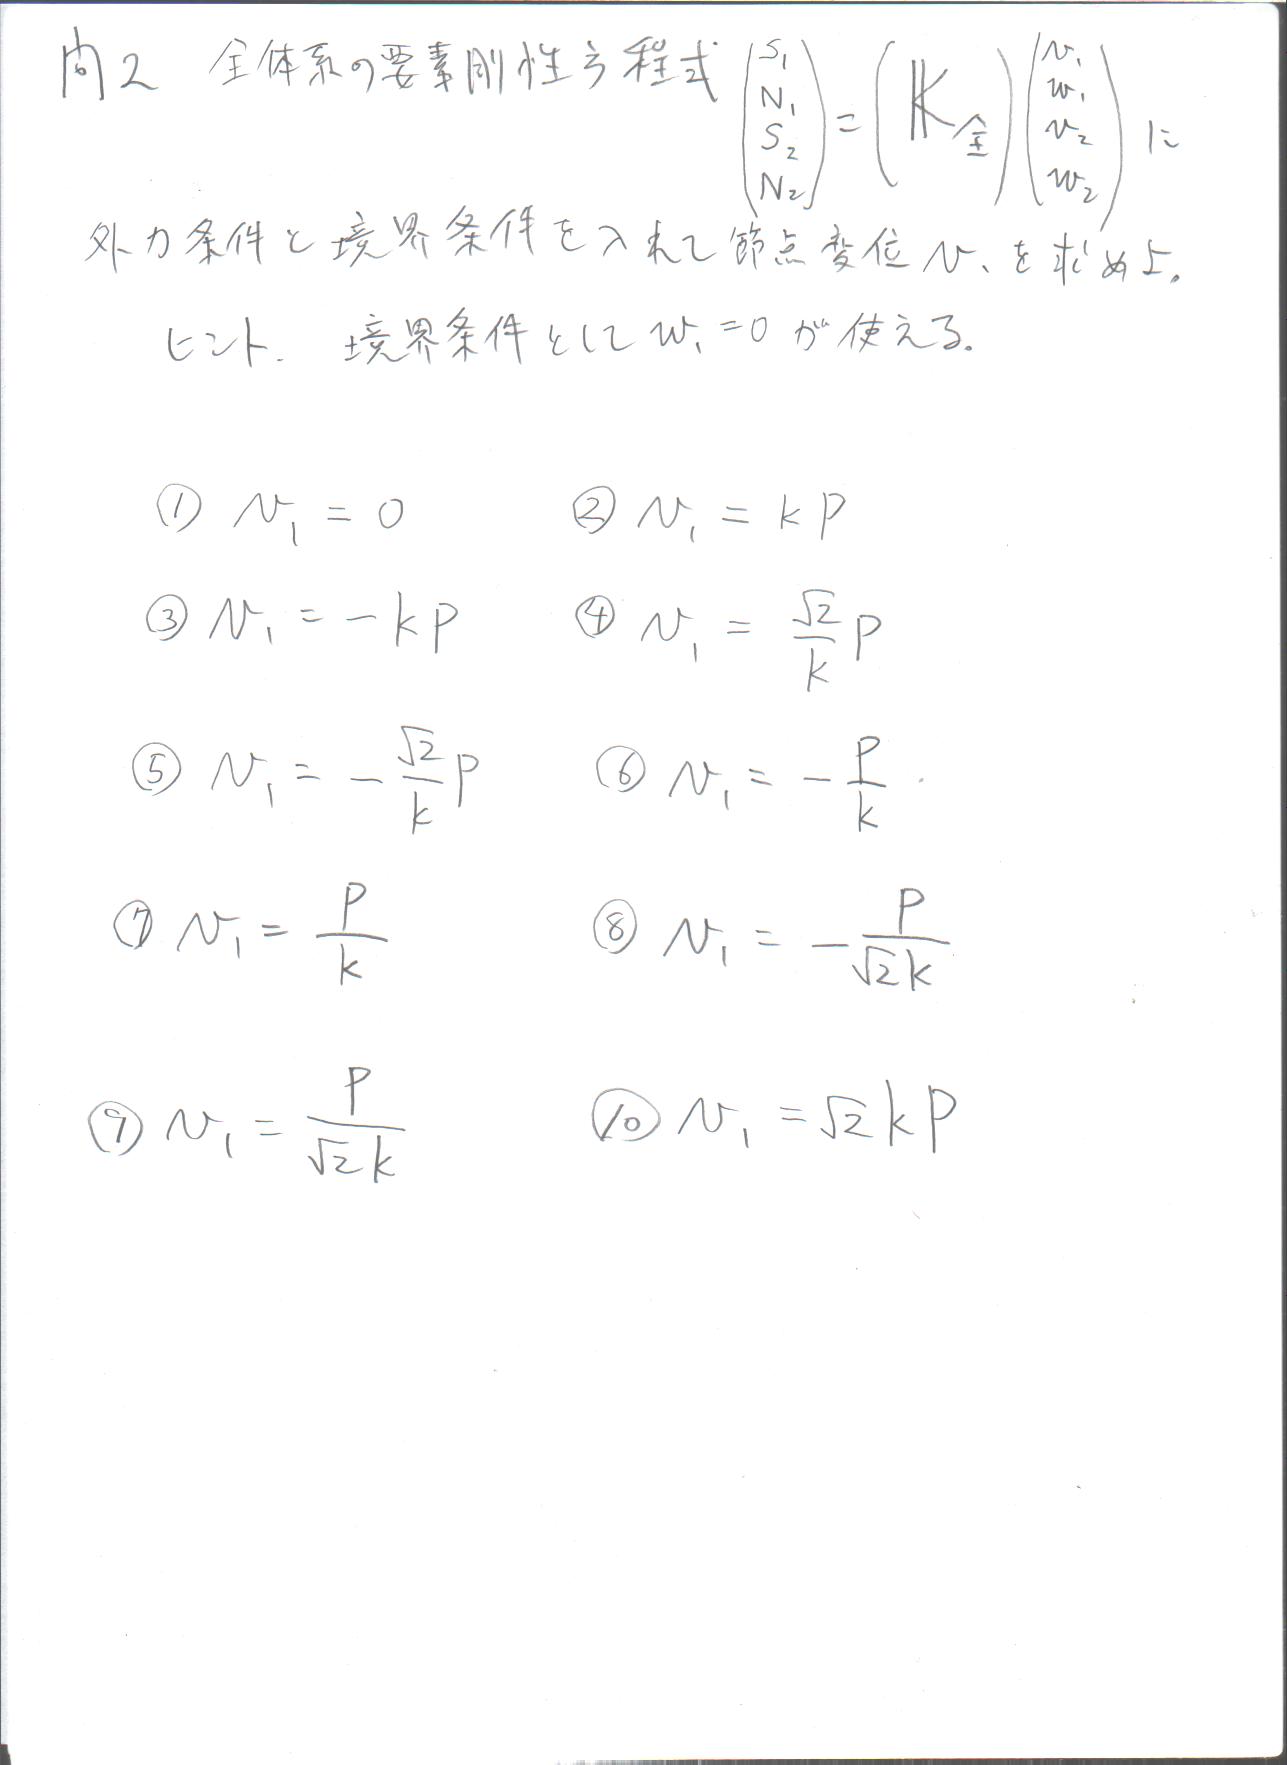 問2 全体系の要素剛性方程式 (S₁ N₁ S₂ N₂) = (K全) (v₁ w₁ v₂ w₂) に
外力条件と境界条件を入れて節点変位 v₁ を求めよ。
ヒント. 境界条件として w₁=0 が使える。
① v₁ = 0 ② v₁ = kP
③ v₁ = -kP ④ v₁ = √2/k P
⑤ v₁ = -√2/k P ⑥ v₁ = -P/k
⑦ v₁ = P/k ⑧ v₁ = -P/√2k
⑨ v₁ = P/√2k ⑩ v₁ = √2kP